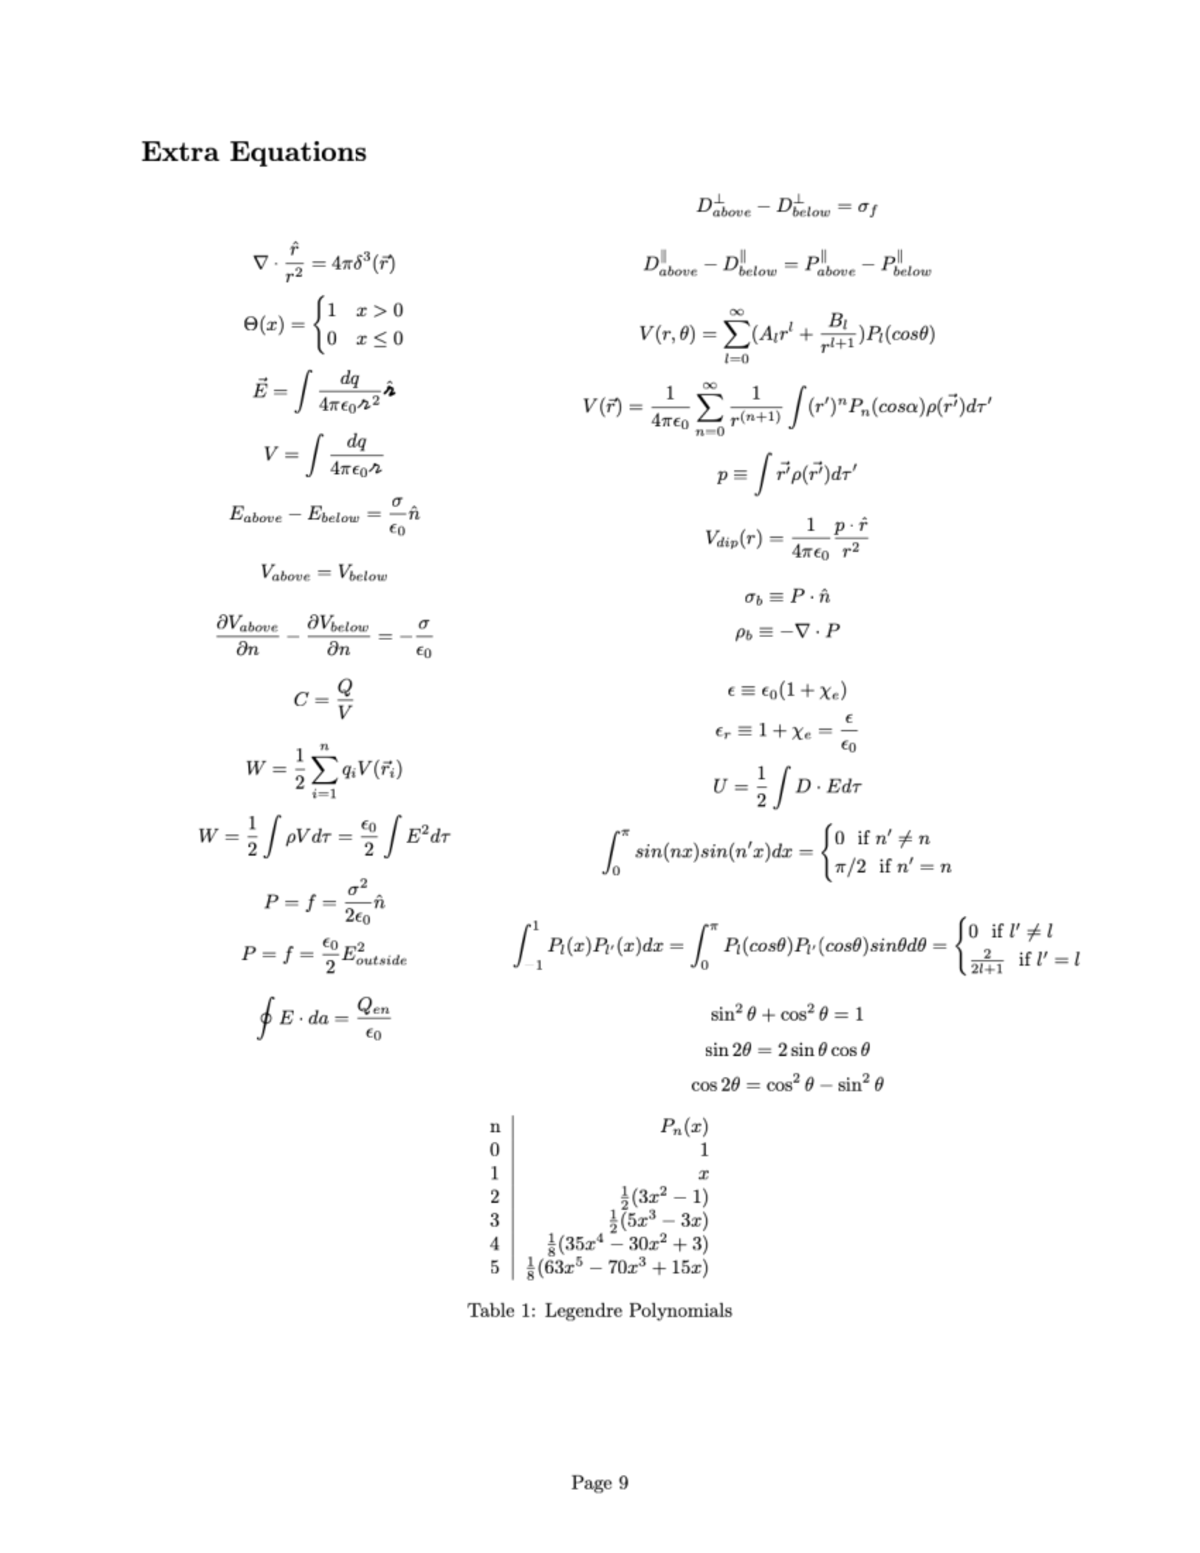 Extra Equations
∇ · r̂/r² = 4πδ³(r⃗)
Θ(x) = {1 x > 0
0 x ≤ 0
E⃗ = ∫ dq/4πϵ₀𝓇² 𝓇̂
V = ∫ dq/4πϵ₀𝓇
E_above − E_below = σ/ϵ₀ n̂
V_above = V_below
∂V_above/∂n − ∂V_below/∂n = −σ/ϵ₀
C = Q/V
W = 1/2 ∑_{i=1}^{n} qᵢV(r⃗ᵢ)
W = 1/2 ∫ ρVdτ = ϵ₀/2 ∫ E²dτ
P = f = σ²/2ϵ₀ n̂
P = f = ϵ₀/2 E²_outside
∮ E · da = Q_en/ϵ₀
D^⊥_above − D^⊥_below = σ_f
D^∥_above − D^∥_below = P^∥_above − P^∥_below
V(r, θ) = ∑_{l=0}^{∞} (A_l r^l + B_l/r^{l+1})P_l(cosθ)
V(r⃗) = 1/4πϵ₀ ∑_{n=0}^{∞} 1/r^{(n+1)} ∫ (r′)ⁿPₙ(cosα)ρ(r⃗′)dτ′
p ≡ ∫ r⃗′ρ(r⃗′)dτ′
V_dip(r) = 1/4πϵ₀ p · r̂/r²
σ_b ≡ P · n̂
ρ_b ≡ −∇ · P
ϵ ≡ ϵ₀(1 + χₑ)
ϵᵣ ≡ 1 + χₑ = ϵ/ϵ₀
U = 1/2 ∫ D · Edτ
∫_0^π sin(nx)sin(n′x)dx = {0 if n′ ≠ n
π/2 if n′ = n
∫_{-1}^{1} P_l(x)P_l′(x)dx = ∫_0^π P_l(cosθ)P_l′(cosθ)sinθdθ = {0 if l′ ≠ l
2/2l+1 if l′ = l
sin² θ + cos² θ = 1
sin 2θ = 2 sin θ cos θ
cos 2θ = cos² θ − sin² θ
n Pₙ(x)
0 1
1 x
2 ½(3x² − 1)
3 ½(5x³ − 3x)
4 ⅛(35x⁴ − 30x² + 3)
5 ⅛(63x⁵ − 70x³ + 15x)
Table 1: Legendre Polynomials
Page 9